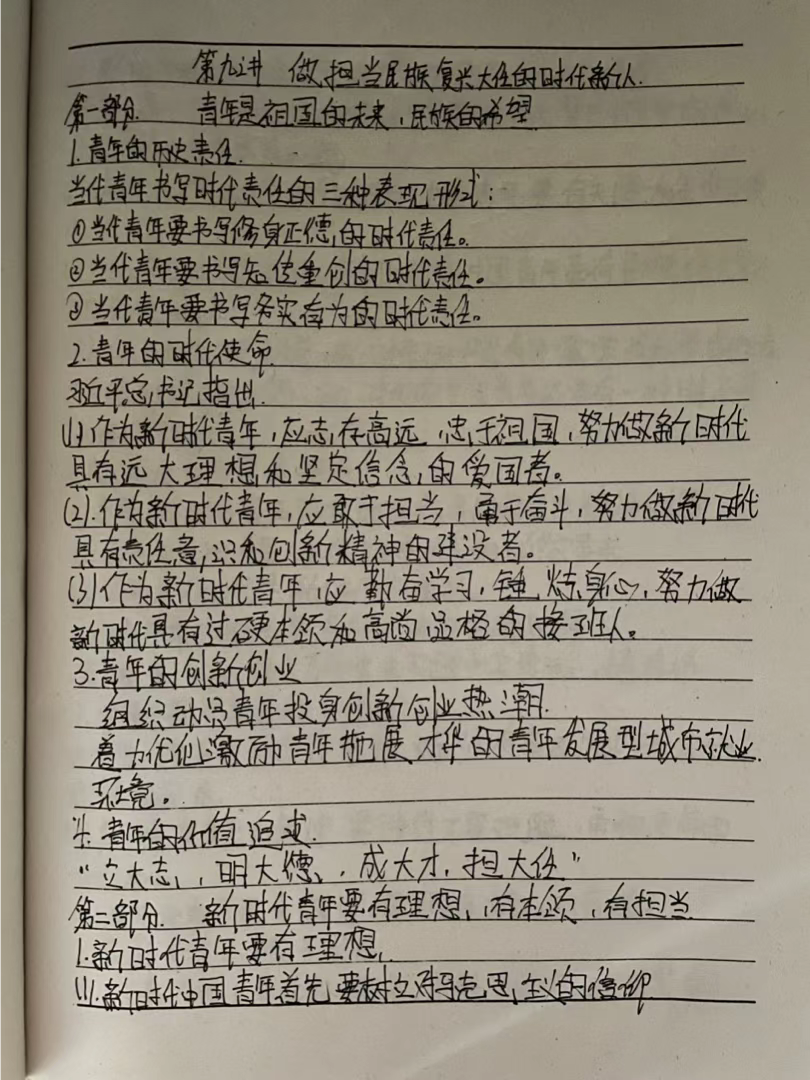 第九讲 做担当民族复兴大任的时代新人.
第一部分. 青年是祖国的未来，民族的希望
1.青年的历史责任.
当代青年书写时代责任的三种表现形式：
①当代青年要书写修身正德的时代责任。
②当代青年要书写知传重创的时代责任。
③当代青年要书写务实有为的时代责任。
2.青年的时代使命
习近平总书记指出.
(1)作为新时代青年，应志存高远，忠于祖国，努力做新时代
具有远大理想和坚定信念的爱国者。
(2).作为新时代青年，应敢于担当，勇于奋斗，努力做新时代
具有责任意识和创新精神的建设者。
(3)作为新时代青年，应勤奋学习，锤炼身心，努力做
新时代具有过硬本领和高尚品格的接班人。
3.青年的创新创业
组织动员青年投身创新创业热潮.
着力优化激励青年施展才华的青年发展型城市就业.
环境。
4.青年的价值追求.
“立大志，明大德，成大才，担大任”
第二部分. 新时代青年要有理想，有本领，有担当
1.新时代青年要有理想.
(1).新时代中国青年首先要树立对马克思主义的信仰.